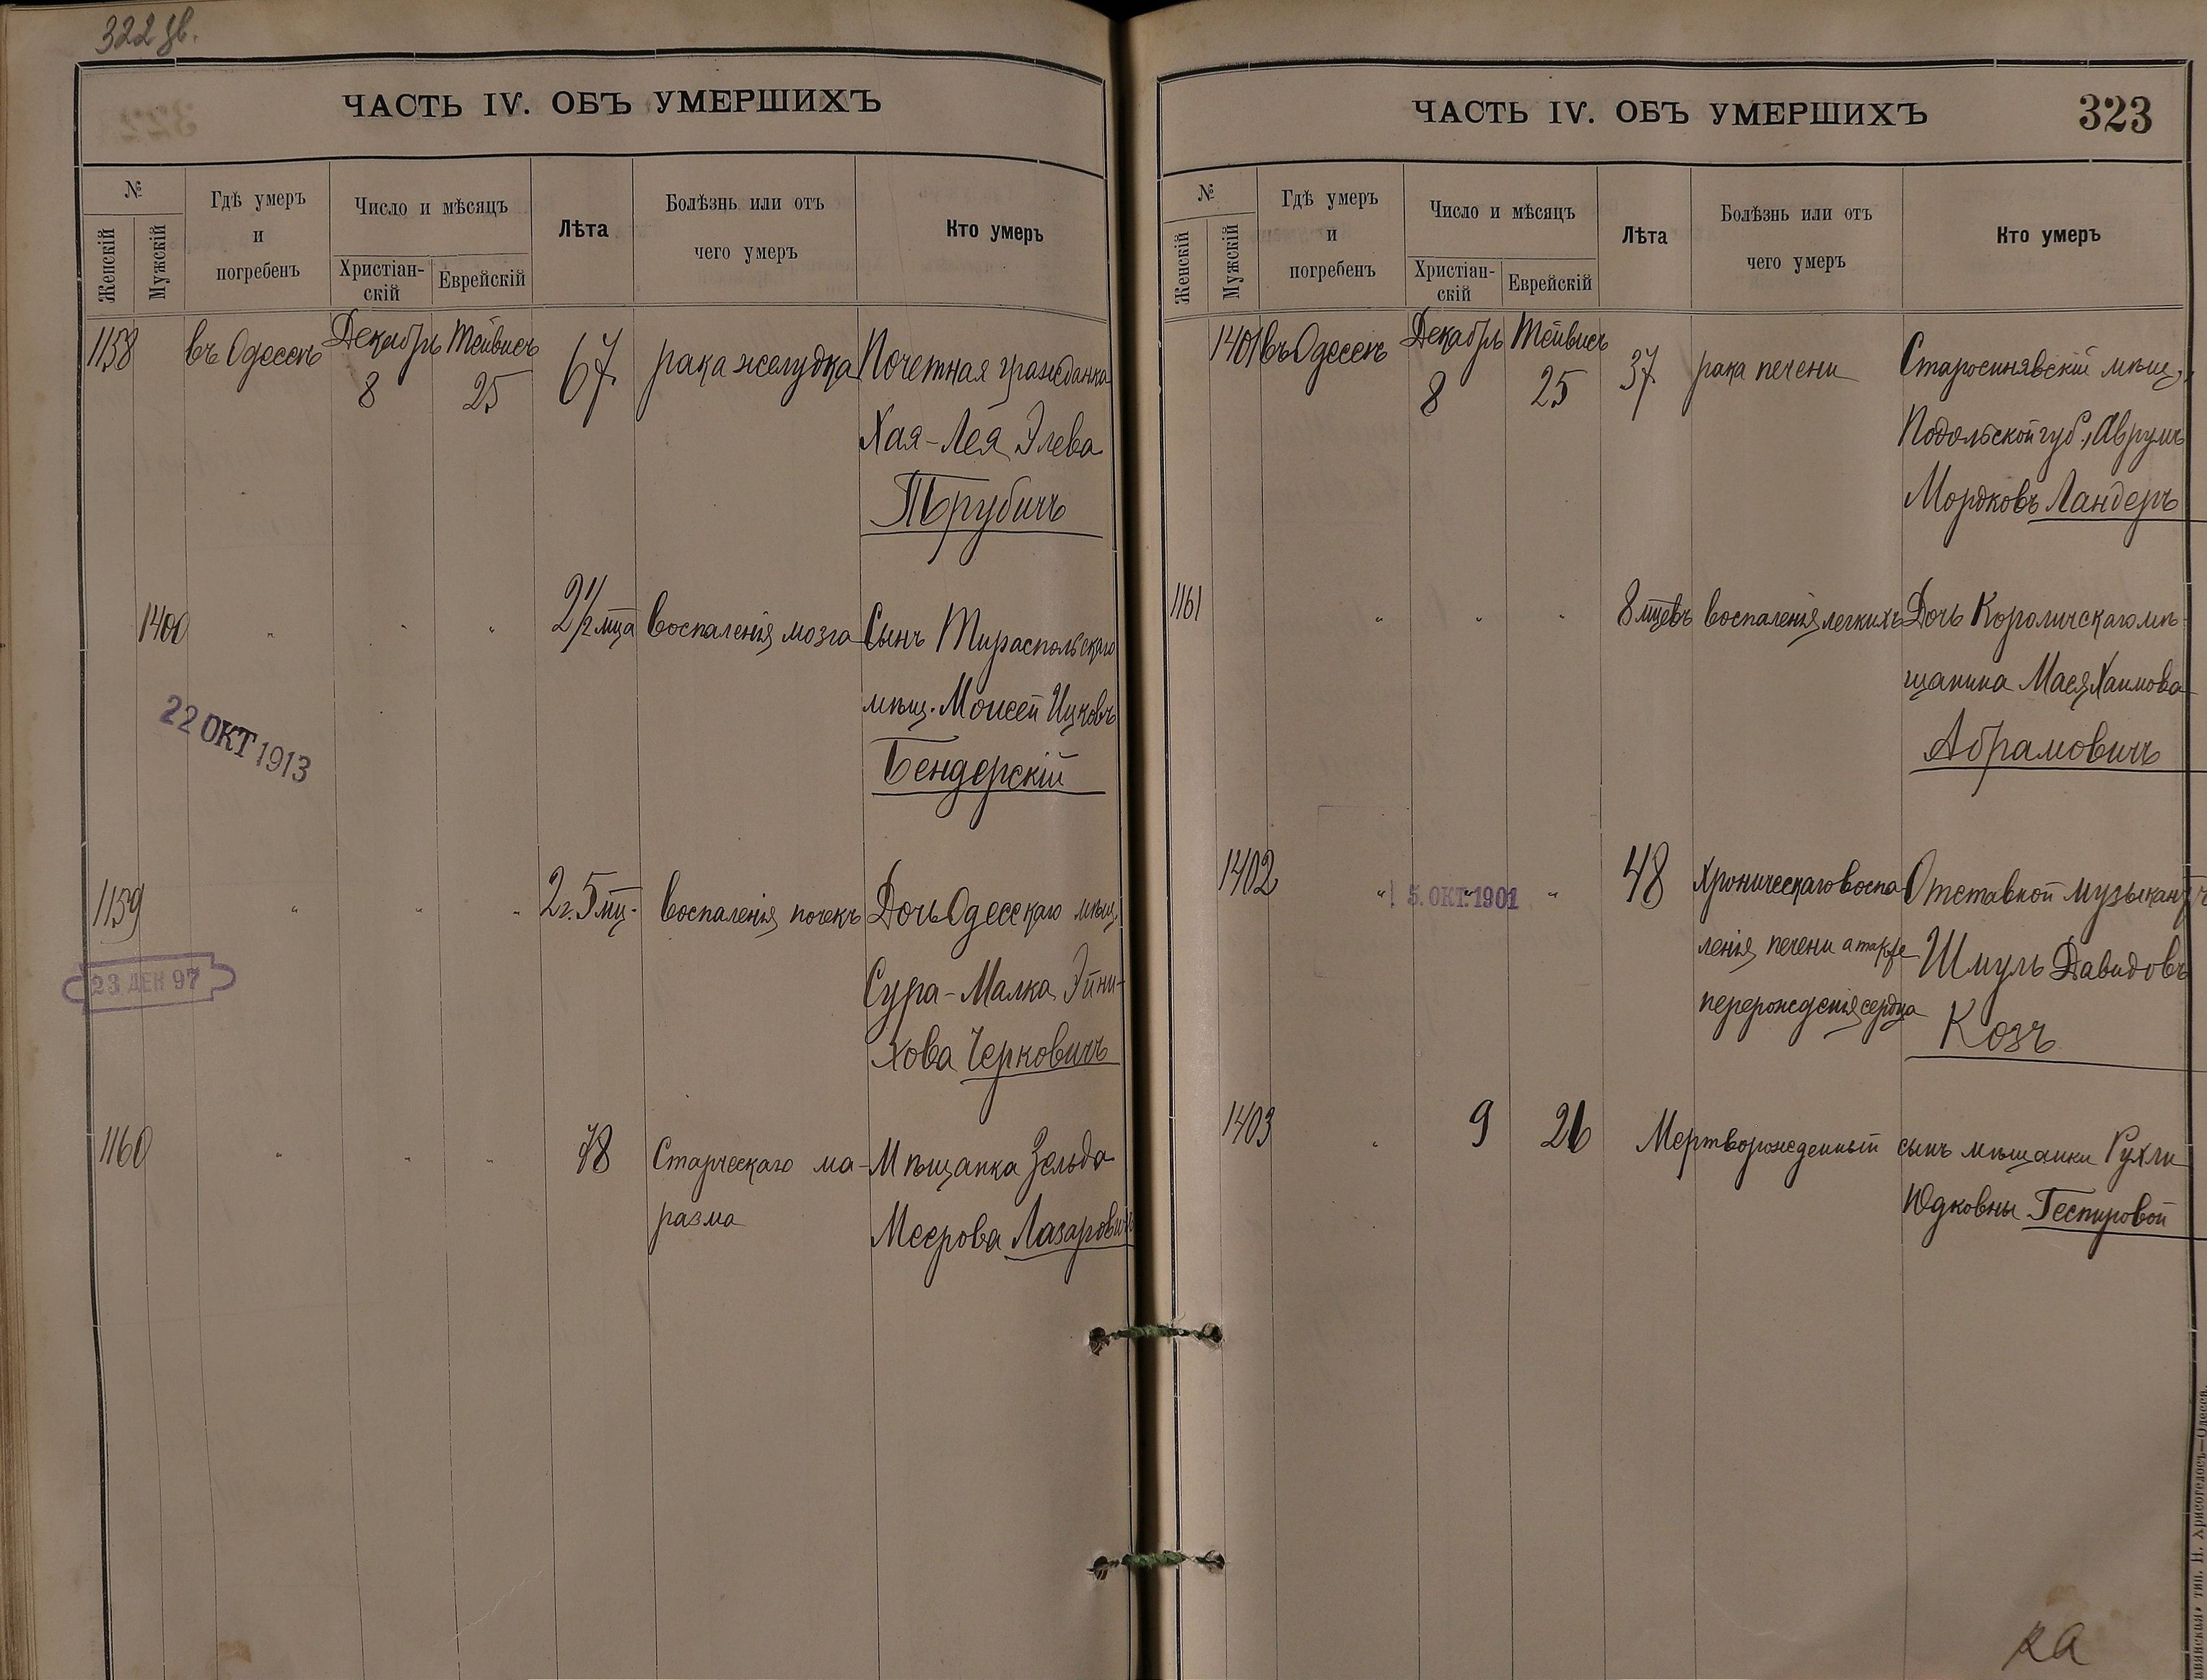 322 зв.
ЧАСТЬ IV. ОБЪ УМЕРШИХЪ
№
Женскій
Мужскій
Гдѣ умеръ
и
погребенъ
Число и мѣсяцъ
Христіан-
скій
Еврейскій
Лѣта
Болѣзнь или отъ
чего умеръ
Кто умеръ
1158 въ Одессѣ Декабрь Тейвисъ 67 рака желудка Почетная гражданка
8 25
Хая-Лея Элева
Трубичъ
1400 " " " 2 1/2 мца воспаленія мозга Сынъ Тираспольскаго
мѣщ. Моисей Ицковъ
Бендерскій
22 ОКТ 1913
1159 " " " 2 г. 5 мц. воспаленія почекъ Дочь Одесскаго мѣщ.
Сура-Малка Эйни-
хова Черковичъ
23 ДЕК 97
1160 " " " 78 Старческаго ма- Мѣщанка Зельда
разма Меерова Лазаровичъ
ЧАСТЬ IV. ОБЪ УМЕРШИХЪ
323
№
Женскій
Мужскій
Гдѣ умеръ
и
погребенъ
Число и мѣсяцъ
Христіан-
скій
Еврейскій
Лѣта
Болѣзнь или отъ
чего умеръ
Кто умеръ
1401 въ Одессѣ Декабрь Тейвисъ 37 рака печени Старосинявскій мѣщ.,
8 25
Подольской губ., Аврумъ
Мордковъ Ландеръ
1161 " " " 8 мцевъ воспаленія легкихъ Дочь Короличскаго мѣ-
щанина Мася Хаимова
Абрамовичъ
1402 " " " 48 Хроническаго воспа- Отставной музыкантъ
5. ОКТ. 1901
ленія печени а также Шмуль Давидовъ
перерожденія сердца Козъ
1403 " 9 26 Мертворожденный сынъ мѣщанки Рухли
Юдковны Гестировой